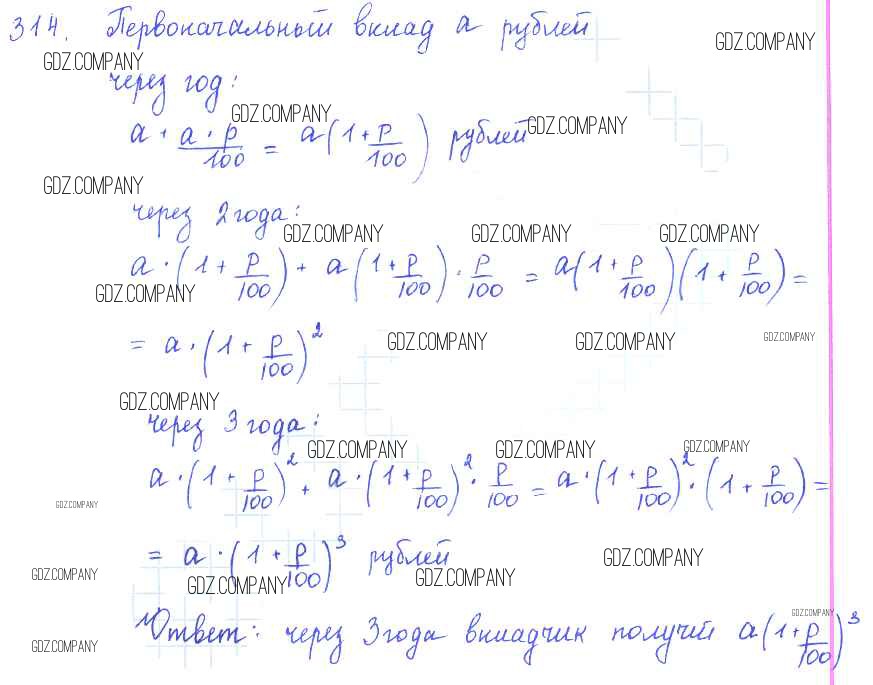 314. Первоначальный вклад a рублей
GDZ.COMPANY
GDZ.COMPANY
через год:
GDZ.COMPANY
GDZ.COMPANY
a + a · p/100 = a(1 + p/100) рублей
GDZ.COMPANY
через 2 года:
GDZ.COMPANY GDZ.COMPANY GDZ.COMPANY
a · (1 + p/100) + a(1 + p/100) · p/100 = a(1 + p/100)(1 + p/100) =
GDZ.COMPANY
= a · (1 + p/100)²
GDZ.COMPANY GDZ.COMPANY GDZ.COMPANY
GDZ.COMPANY
через 3 года:
GDZ.COMPANY GDZ.COMPANY GDZ.COMPANY
a · (1 + p/100)² + a · (1 + p/100)² · p/100 = a · (1 + p/100)² · (1 + p/100) =
GDZ.COMPANY
= a · (1 + p/100)³ рублей
GDZ.COMPANY
GDZ.COMPANY GDZ.COMPANY GDZ.COMPANY
GDZ.COMPANY
Ответ: через 3 года вкладчик получит a(1 + p/100)³
GDZ.COMPANY